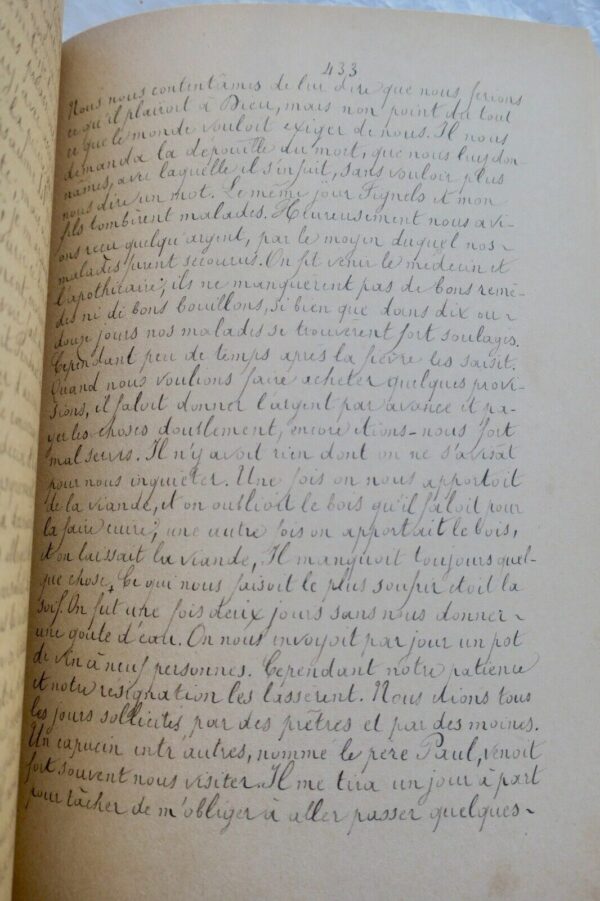 433
Nous nous contentâmes de lui dire que nous ferions
ce qu'il plairoit à Dieu, mais non point du tout
ce que le monde vouloit exiger de nous. Il nous
demanda la depouille du mort, que nous luy don
nâmes, avec laquelle il s'enfuit, sans vouloir plus
nous dire un mot. Le même jour et mon
fils tombèrent malades. Heureusement nous avi-
ons reçu quelqu'argent, par le moyen duquel nos-
malades furent secourus. On fit venir le médecin et
l'apothicaire; ils ne manquèrent pas de bons remè-
des ni de bons bouillons, si bien que dans dix ou-
douze jours nos malades se trouvèrent fort soulagés.
Cependant peu de temps après la fièvre les saisit.
Quand nous voulions faire acheter quelques provi-
sions, il faloit donner l'argent par avance et pa-
yer les choses doublement, encore étions-nous fort
mal servis. Il n'y avoit rien dont on ne s'avisât
pour nous inquiéter. Une fois on nous apportoit
de la viande, et on oublioit le bois qu'il faloit pour
la faire cuire; une autre fois on apportait le bois,
et on laissait la viande, Il manquoit toujours quel-
que chose. Ce qui nous faisoit le plus soufrir étoit la
soif. On fut une fois deux jours sans nous donner-
une goûte d'eau. On nous envoyoit par jour un pot
de vin à neuf personnes. Cependant notre patience
et notre résignation les lassèrent. Nous étions tous
les jours sollicités par des prêtres et par des moines.
Un capucin entr'autres, nommé le père Paul, venoit
fort souvent nous visiter. Il me tira un jour à part
pour tâcher de m'obliger à aller passer quelques-